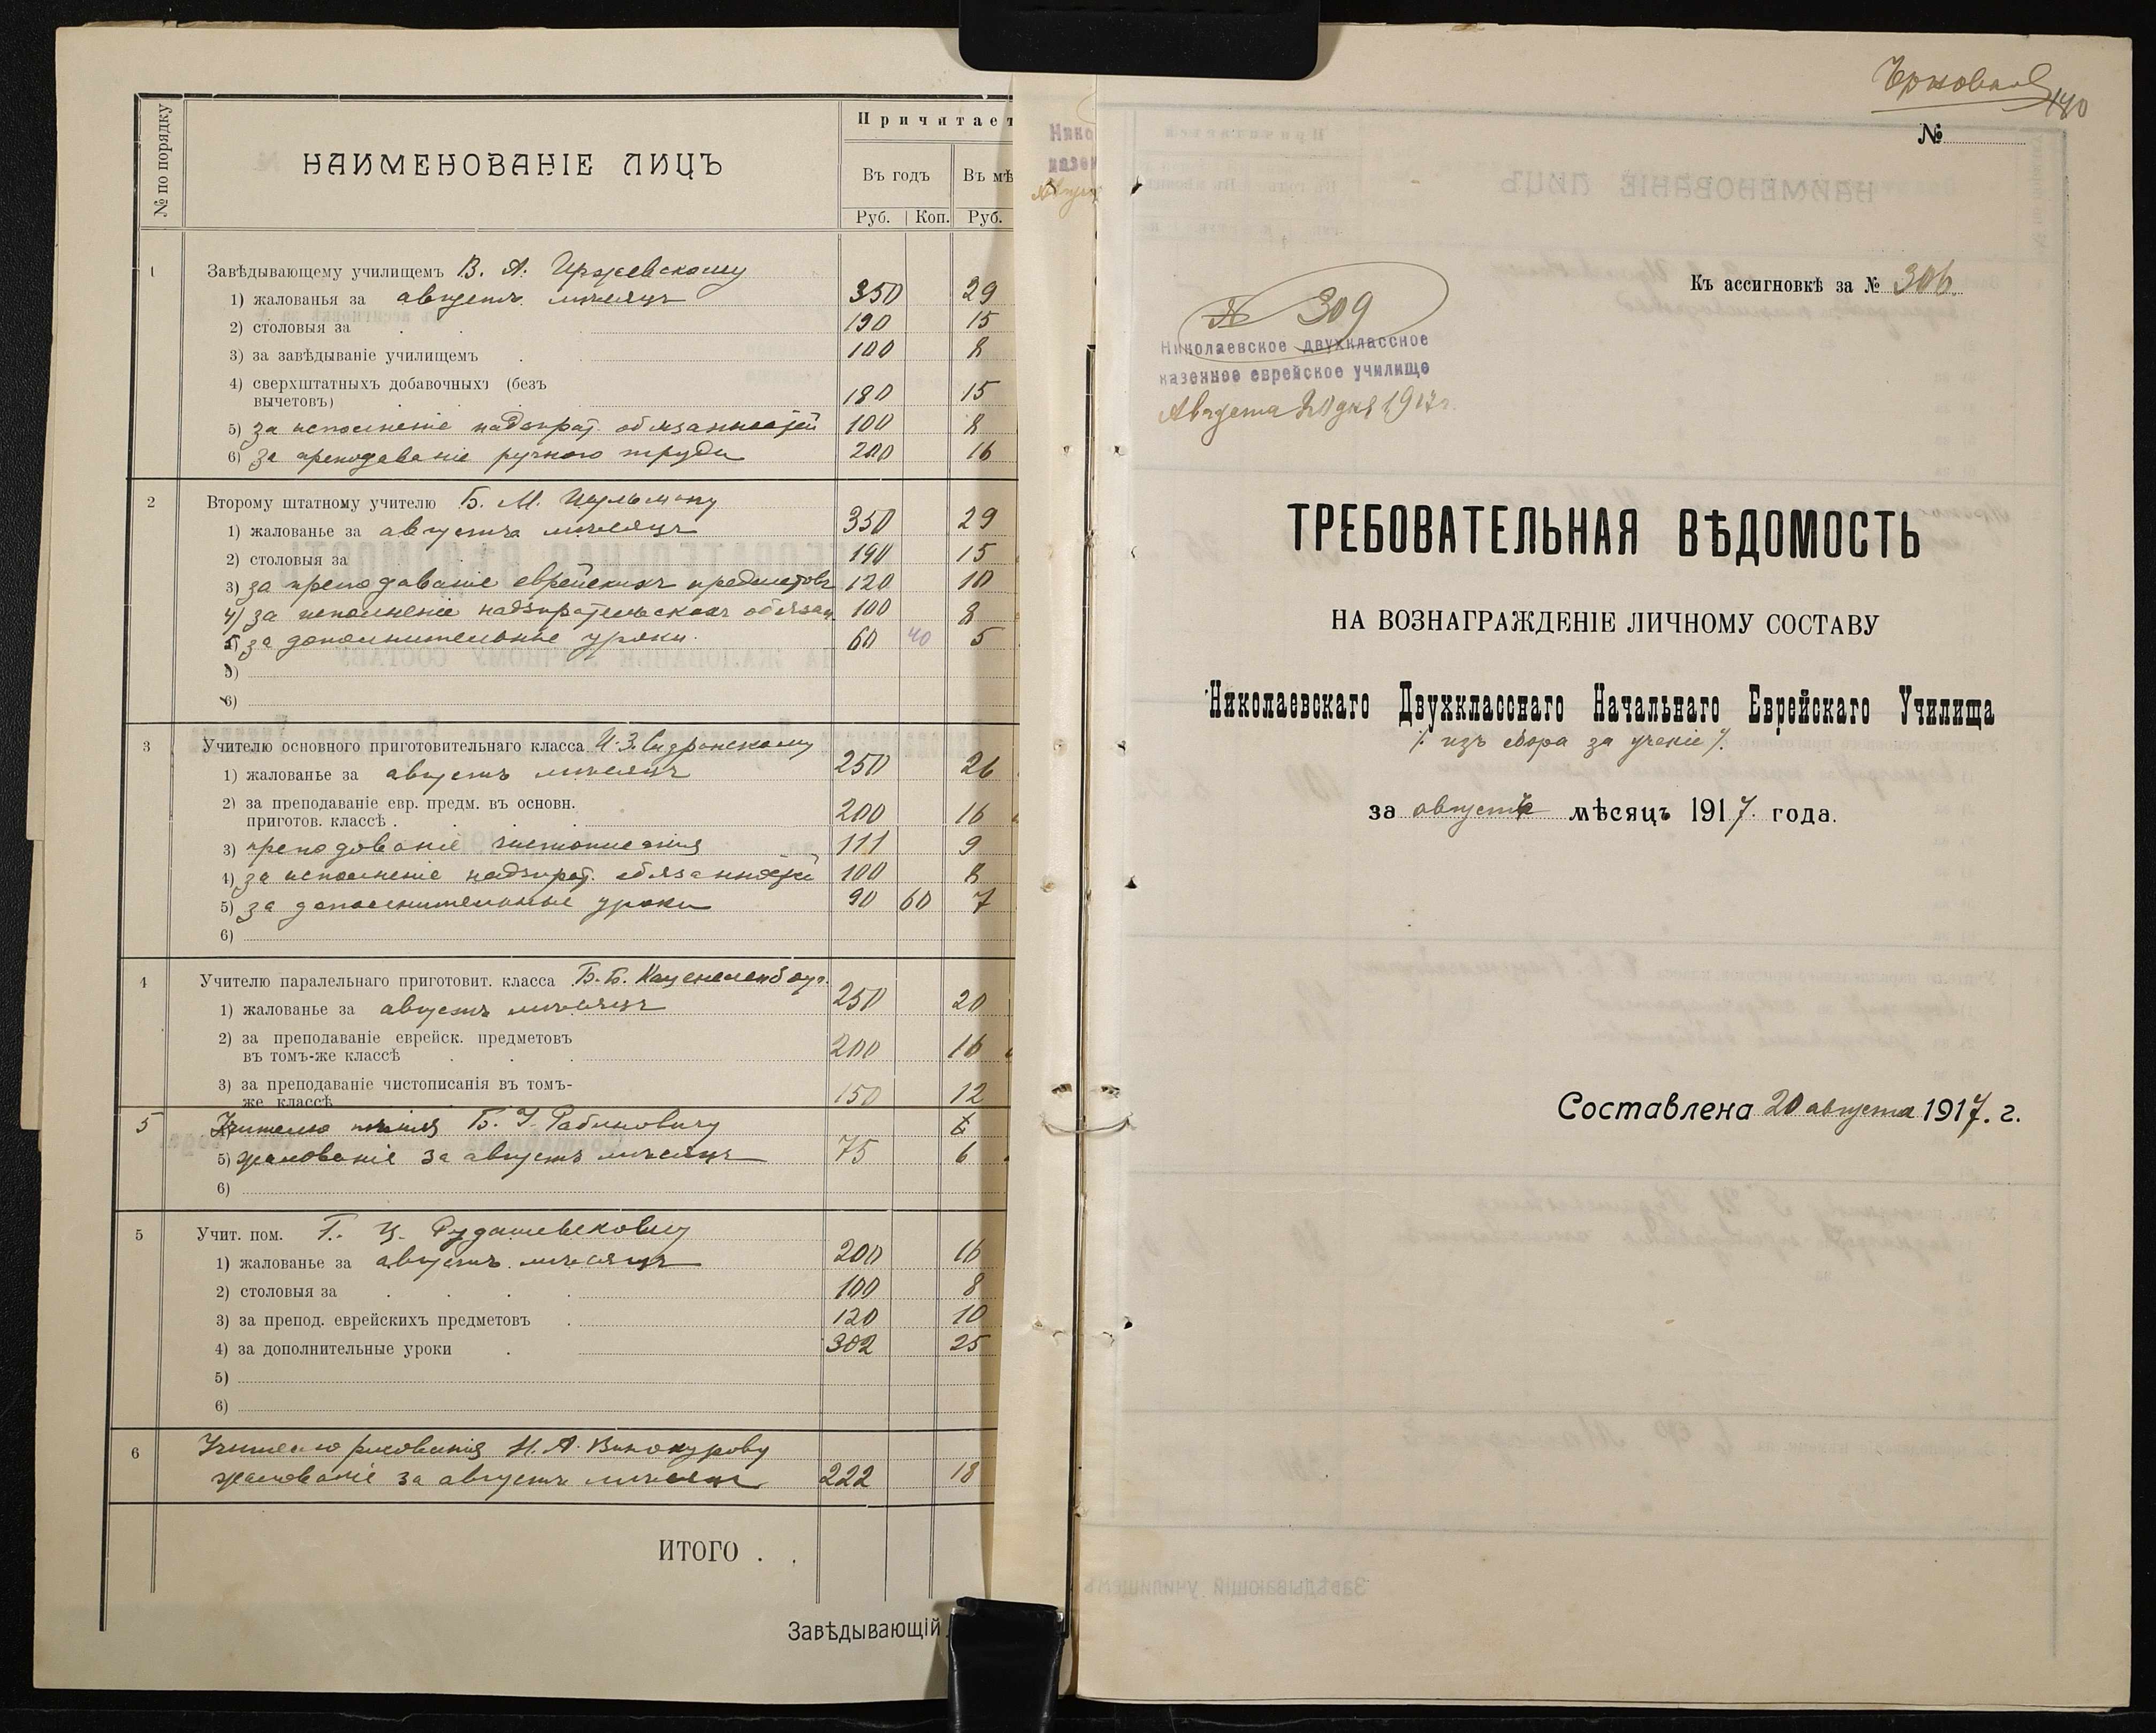 № по порядку
НАИМЕНОВАНІЕ ЛИЦЪ
Причитает
Въ годъ
Въ мѣ
Руб. Коп. Руб.
1 Завѣдывающему училищемъ В. А.
1) жалованья за августъ мѣсяцъ 350 29
2) столовыя за 190 15
3) за завѣдываніе училищемъ 100 8
4) сверхштатныхъ добавочныхъ (безъ
вычетовъ) 180 15
5) за исполненіе надзират. обязанностей 100 8
6) за преподаваніе ручного труда 200 16
2 Второму штатному учителю Б. М. Шульману
1) жалованье за августъ мѣсяцъ 350 29
2) столовыя за 190 15
3) за преподаваніе еврейскихъ предметовъ 120 10
4) за исполненіе надзирательскихъ обязан. 100 8
5) за дополнительные уроки. 60 40 5
5)
6)
3 Учителю основного приготовительнаго класса И. З.
1) жалованье за августъ мѣсяцъ 250 26
2) за преподаваніе евр. предм. въ основн.
приготов. классѣ 200 16
3) преподованіе чистописанія 111 9
4) за исполненіе надзират. обязанностей 100 8
5) за дополнительные уроки 90 60 7
6)
4 Учителю паралельнаго приготовит. класса Б. Б. Каценеленбоуг.
1) жалованье за августъ мѣсяцъ 250 20
2) за преподаваніе еврейск. предметовъ
въ томъ-же классѣ 200 16
3) за преподаваніе чистописанія въ томъ-
же классѣ 150 12
5 Учителю пѣнія Б. Рабиновичу 6
5) жалованіе за августъ мѣсяцъ 75 6
6)
5 Учит. пом. Г. Ц. Рудашевскому
1) жалованье за августъ мѣсяцъ 200 16
2) столовыя за 100 8
3) за препод. еврейскихъ предметовъ 120 10
4) за дополнительные уроки 302 25
5)
6)
6 Учителю рисованія Н. А. Винокурову
жалованіе за августъ мѣсяц 222 18
ИТОГО . .
Завѣдывающій
Нико
казен
140
№
Къ ассигновкѣ за № 306.
№ 309
Николаевское двухклассное
казенное еврейское училище
Августа 20 дня 1917 г.
ТРЕБОВАТЕЛЬНАЯ ВѢДОМОСТЬ
НА ВОЗНАГРАЖДЕНІЕ ЛИЧНОМУ СОСТАВУ
Николаевскаго Двухкласснаго Начальнаго Еврейскаго Училища
/. изъ сбора за ученіе /.
за августъ мѣсяцъ 1917. года.
Составлена 20 августа 1917. г.